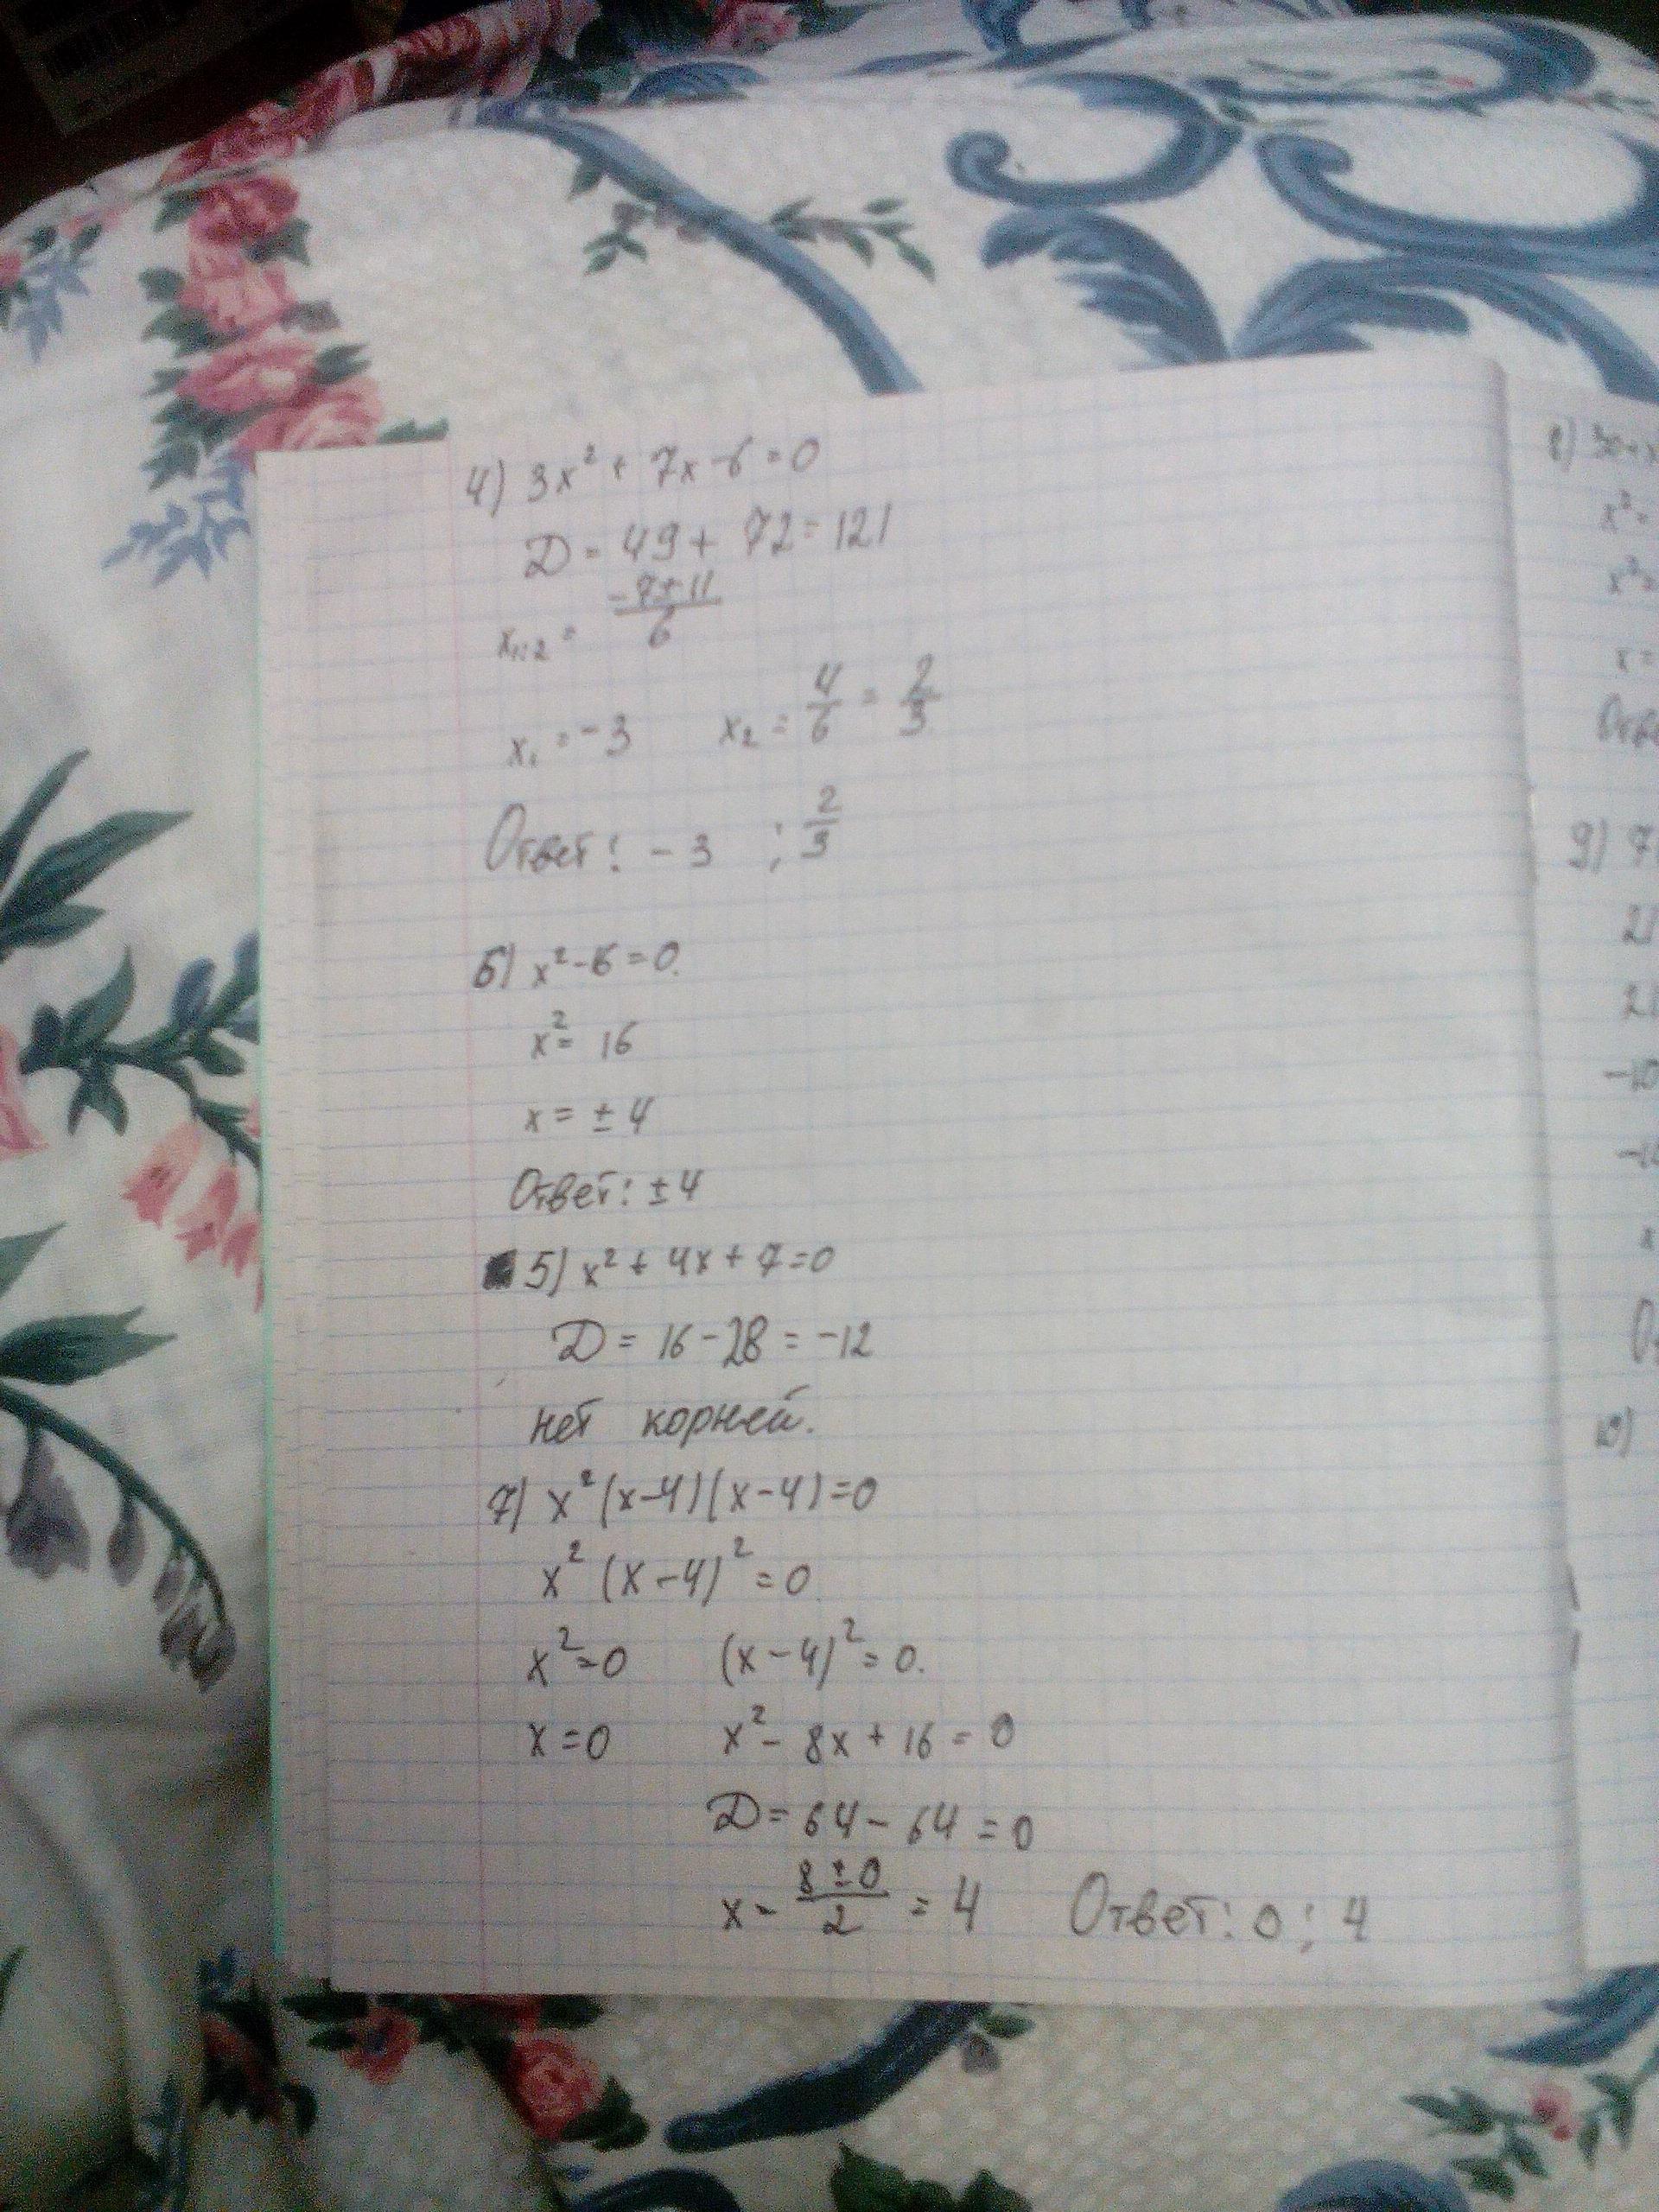 4) 3x² + 7x - 6 = 0
D = 49 + 72 = 121
x₁;₂ = (-7 ± 11)/6
x₁ = -3 x₂ = 4/6 = 2/3
Ответ: -3 ; 2/3
6) x² - 16 = 0.
x² = 16
x = ± 4
Ответ: ± 4
5) x² + 4x + 7 = 0
D = 16 - 28 = -12
нет корней.
7) x² (x - 4) (x - 4) = 0
x² (x - 4)² = 0
x² = 0 (x - 4)² = 0.
x = 0 x² - 8x + 16 = 0
D = 64 - 64 = 0
x = (8 ± 0)/2 = 4 Ответ: 0 ; 4
x² =
x² =
x =
9) 7
21
21
-10
x
10)